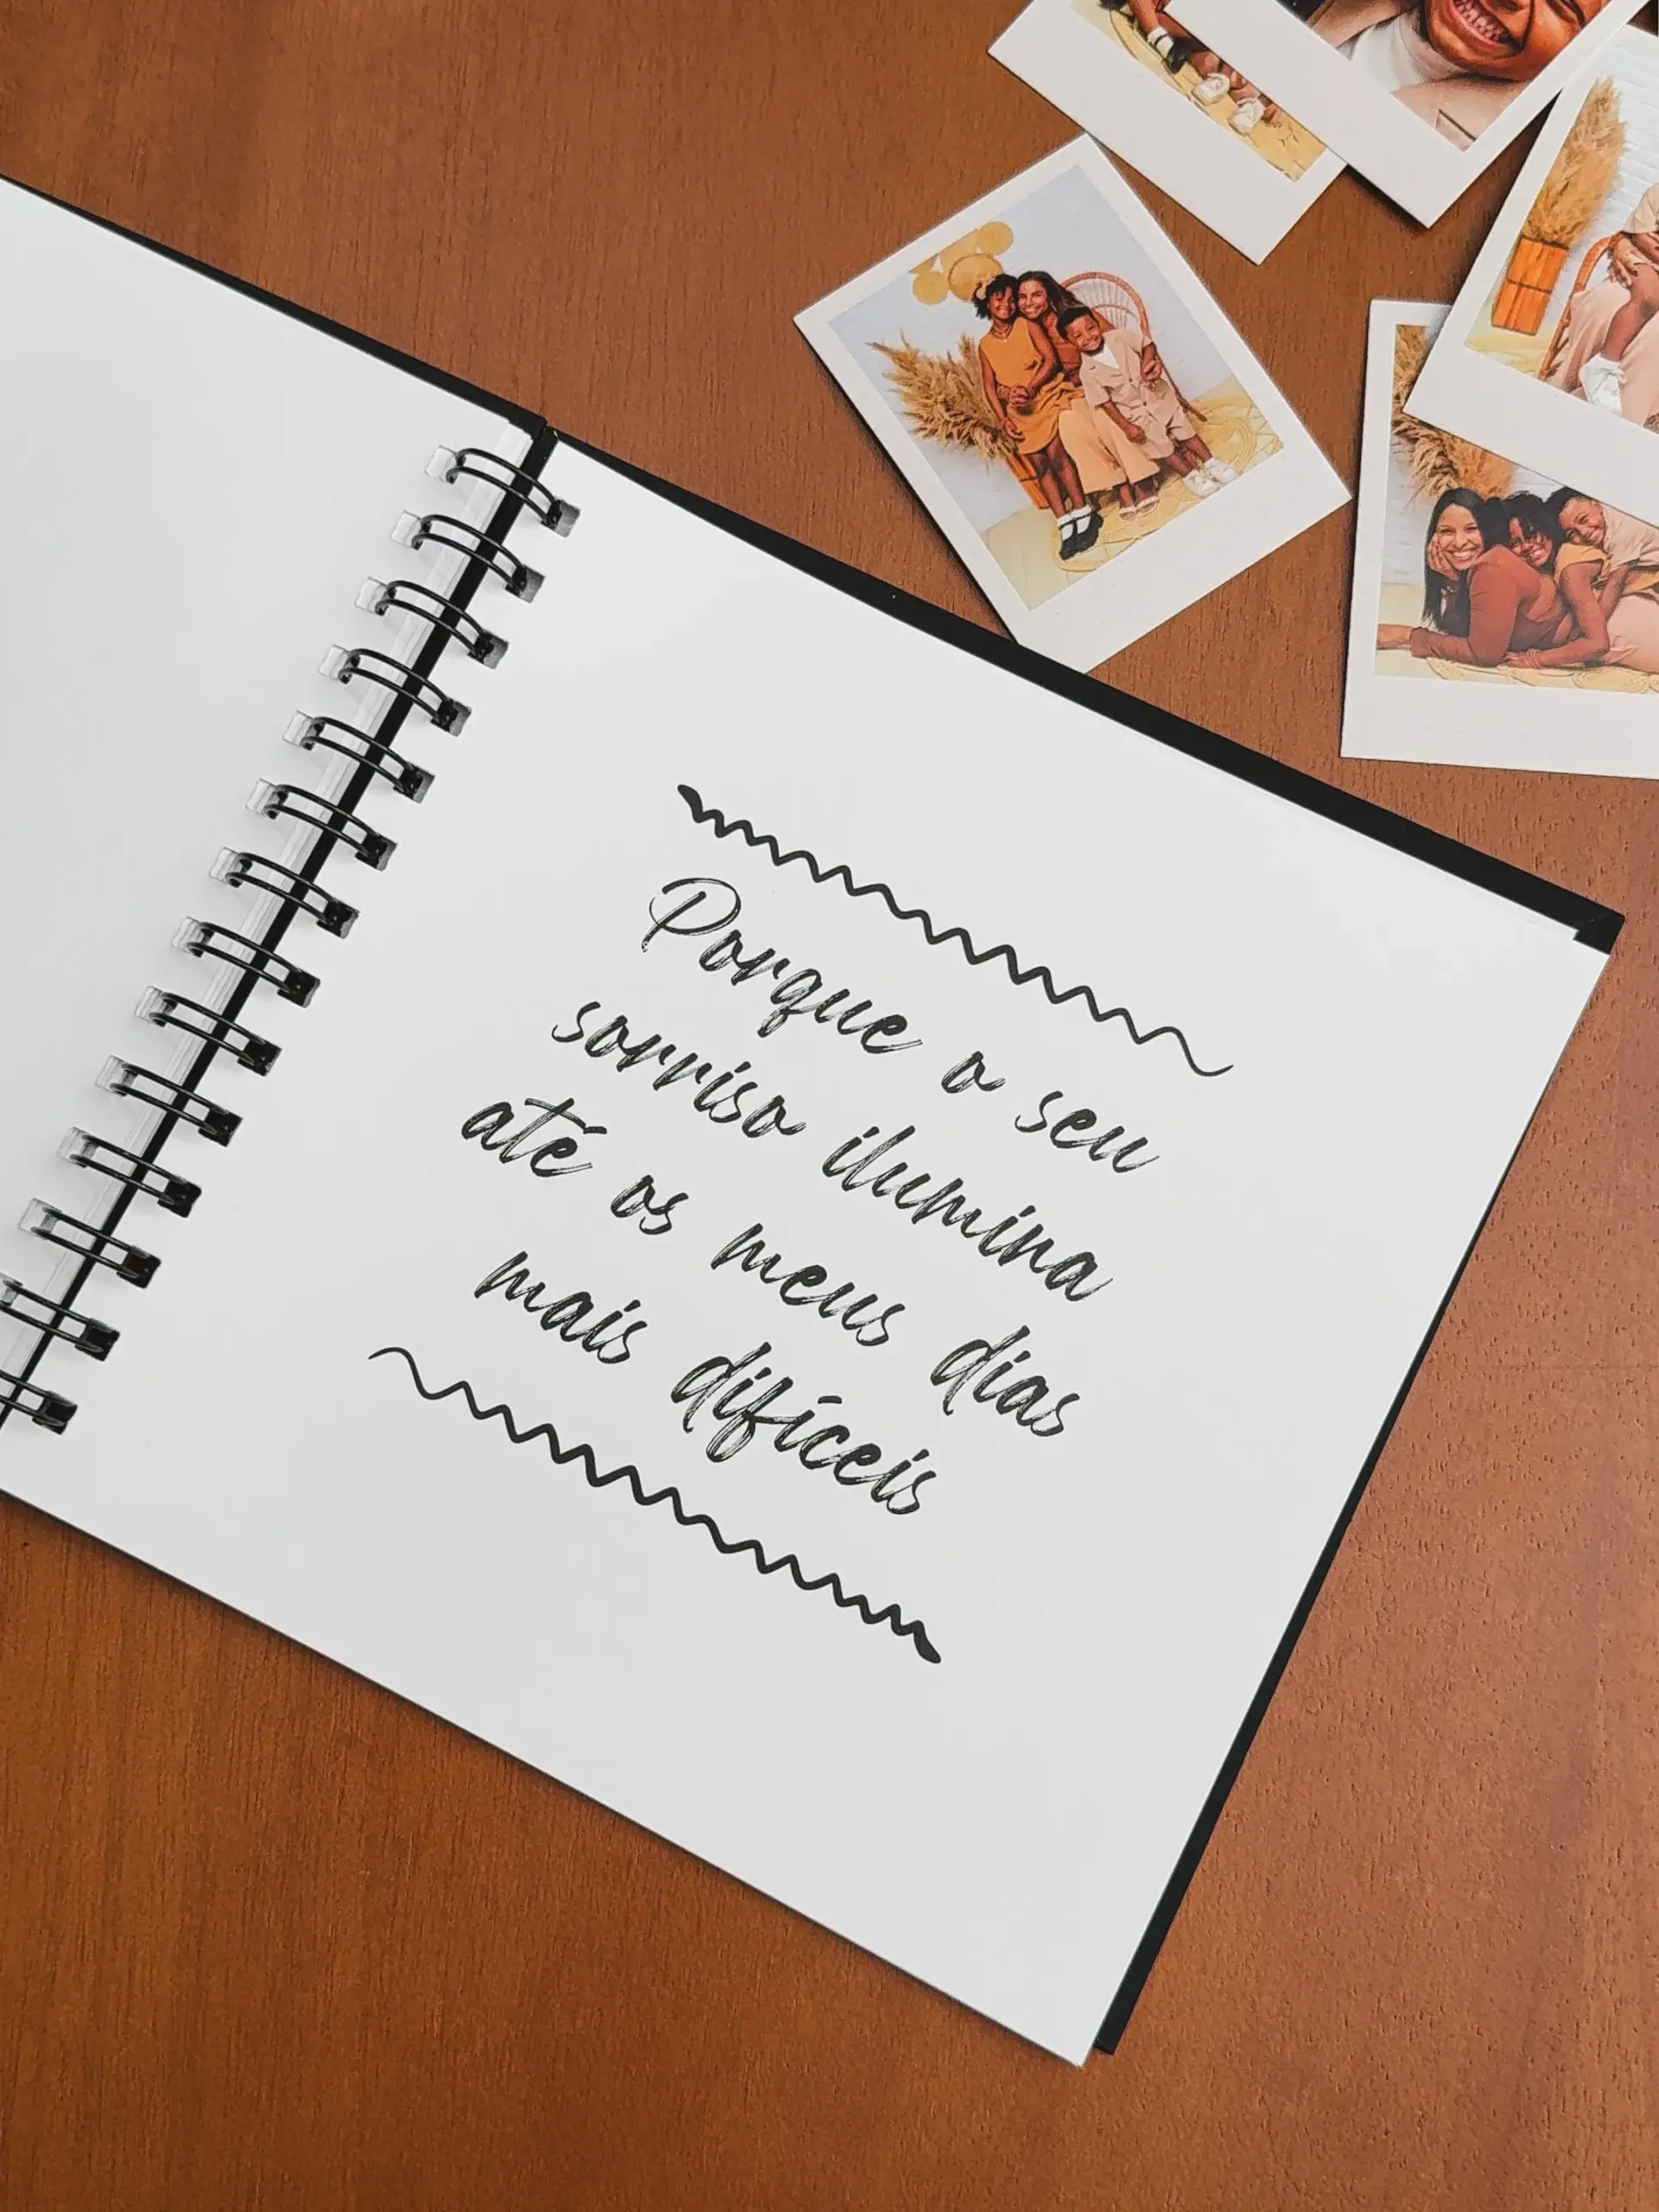 Porque o seu
sorriso ilumina
até os meus dias
mais difíceis